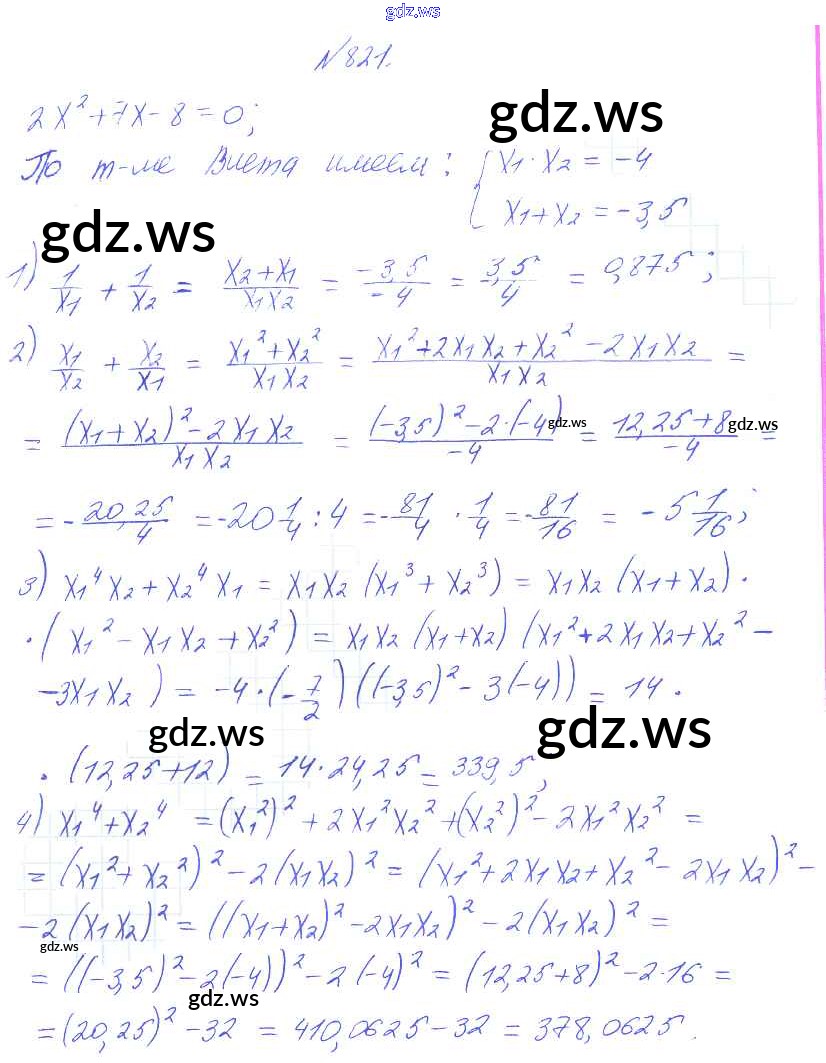 gdz.ws
№821.
2x²+7x-8=0;
gdz.ws
По т-ме Виета имеем: { x1·x2 = -4
x1+x2 = -3,5
gdz.ws
1) 1/x1 + 1/x2 = (x2+x1)/(x1x2) = (-3,5)/(-4) = 3,5/4 = 0,875;
2) x1/x2 + x2/x1 = (x1²+x2²)/(x1x2) = (x1²+2x1x2+x2²-2x1x2)/(x1x2) =
= ((x1+x2)²-2x1x2)/(x1x2) = ((-3,5)²-2·(-4))/(-4) = (12,25+8)/(-4) =
gdz.ws
gdz.ws
= -20,25/4 = -20 1/4 : 4 = -81/4 · 1/4 = -81/16 = -5 1/16;
3) x1⁴x2+x2⁴x1 = x1x2(x1³+x2³) = x1x2(x1+x2)·
·(x1²-x1x2+x2²) = x1x2(x1+x2)(x1²+2x1x2+x2²-
-3x1x2) = -4·(-7/2)((-3,5)²-3(-4)) = 14·
gdz.ws
gdz.ws
·(12,25+12) = 14·24,25 = 339,5;
4) x1⁴+x2⁴ = (x1²)²+2x1²x2²+(x2²)²-2x1²x2² =
= (x1²+x2²)²-2(x1x2)² = (x1²+2x1x2+x2²-2x1x2)²-
-2(x1x2)² = ((x1+x2)²-2x1x2)²-2(x1x2)² =
gdz.ws
= ((-3,5)²-2(-4))²-2(-4)² = (12,25+8)²-2·16 =
gdz.ws
= (20,25)²-32 = 410,0625-32 = 378,0625.
gdz.ws